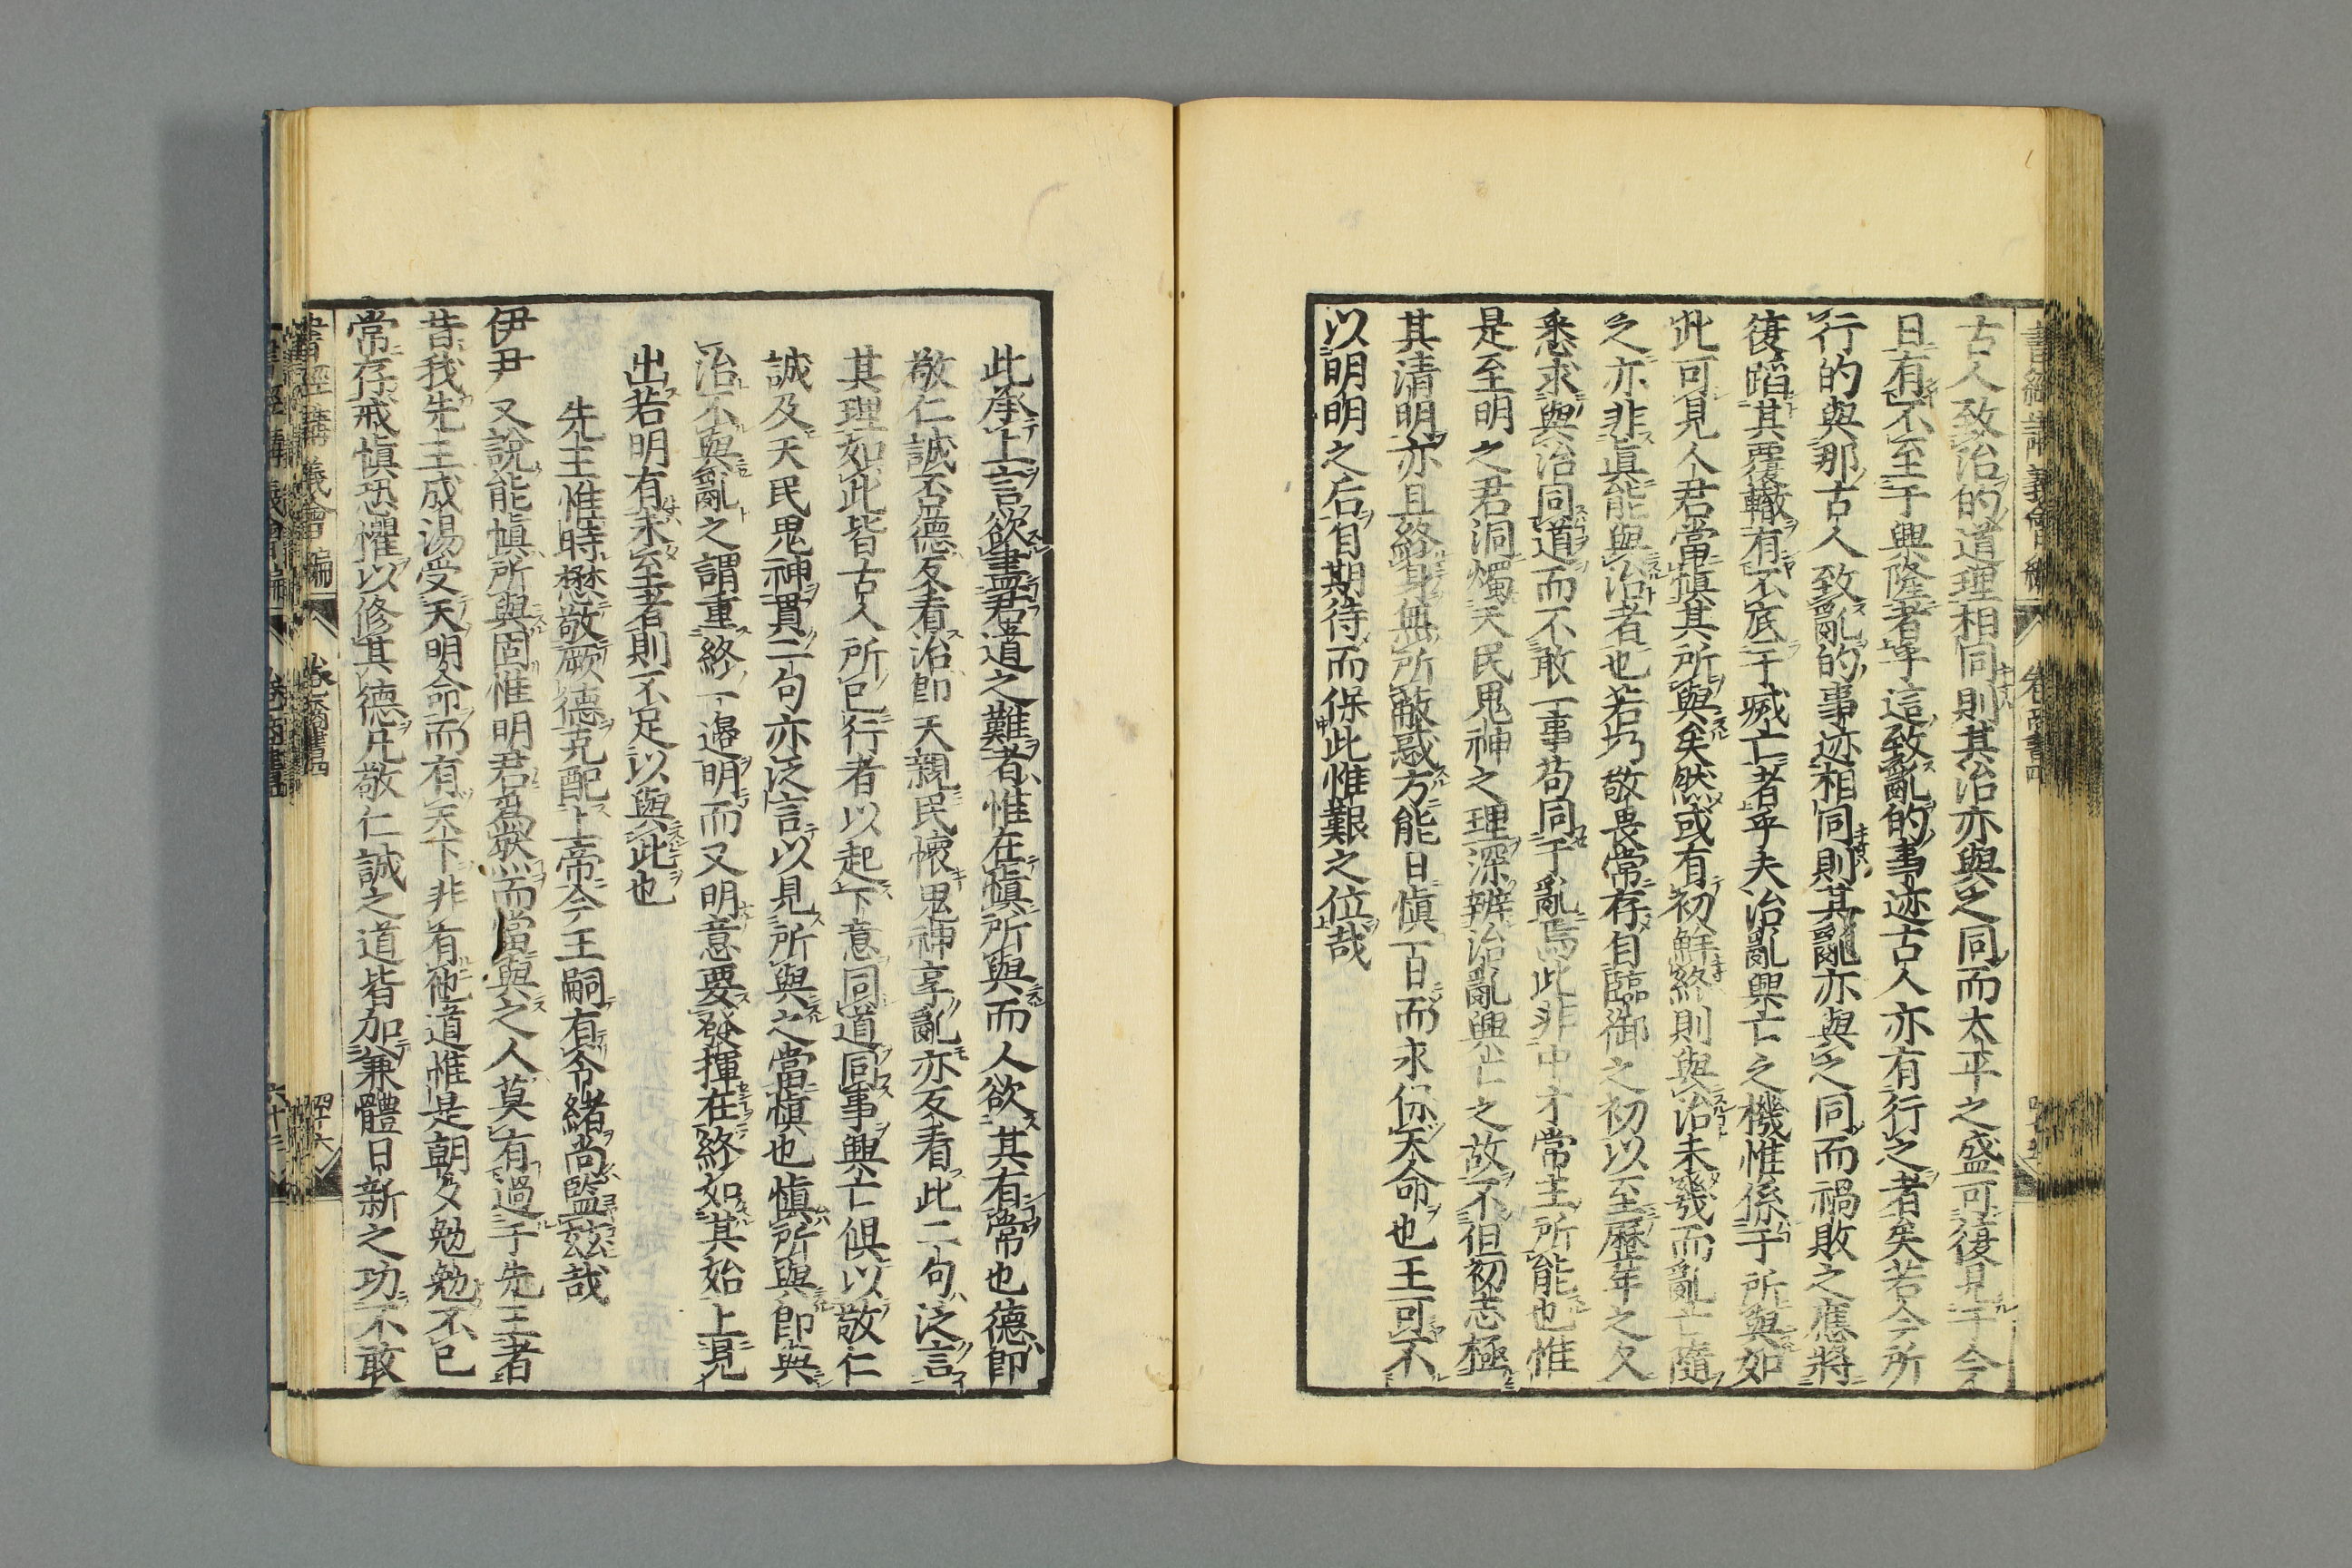 古人致治的道理相同則其治亦與之同而太平之盛可復見于今
日有不至于興隆者乎這致亂的事迹古人亦有行之者矣若今所
行的與那古人致亂的事迹相同則其亂亦與之同而禍敗之應將
復蹈其覆轍有不底于滅亡者乎夫治亂興亡之機惟係于所與如
此可見人君當慎其所與矣然或有初鮮終則與治未幾而亂亡隨
之亦非真能與治者也若乃敬畏常存自臨御之初以至歷年之久
悉求與治同道而不敢一事苟同于亂焉此非中才常主所能也惟
是至明之君洞燭天民鬼神之理深辨治亂興亡之故不但初志極
其清明亦且終身無所蔽惑方能日慎一日而求保天命也王可不
以明明之后自期待而保此惟艱之位哉
此承上言欲盡君道之難者惟在慎所與而人欲其有常也德即
敬仁誠否德反看治即天親民懷鬼神享亂亦反看此二句泛言
其理如此皆古人所已行者以起下意同道同事興亡俱以敬仁
誠及天民鬼神貫二句亦泛言以見所與之當慎也慎所與即與
治不與亂之謂重終一邊明而又明意要發揮在終如其始上見
出若明有未至者則不足以與此也
先王惟時懋敬厥德克配上帝今王嗣有令緒尚監茲哉
伊尹又說能慎所與固惟明君爲然而當與之人莫有過于先王者
昔我先王成湯受天明命而有天下非有他道惟是朝夕勉勉不已
常存戒慎恐懼以修其德凡敬仁誠之道皆加兼體日新之功不敢
書經講義會編
卷商書四